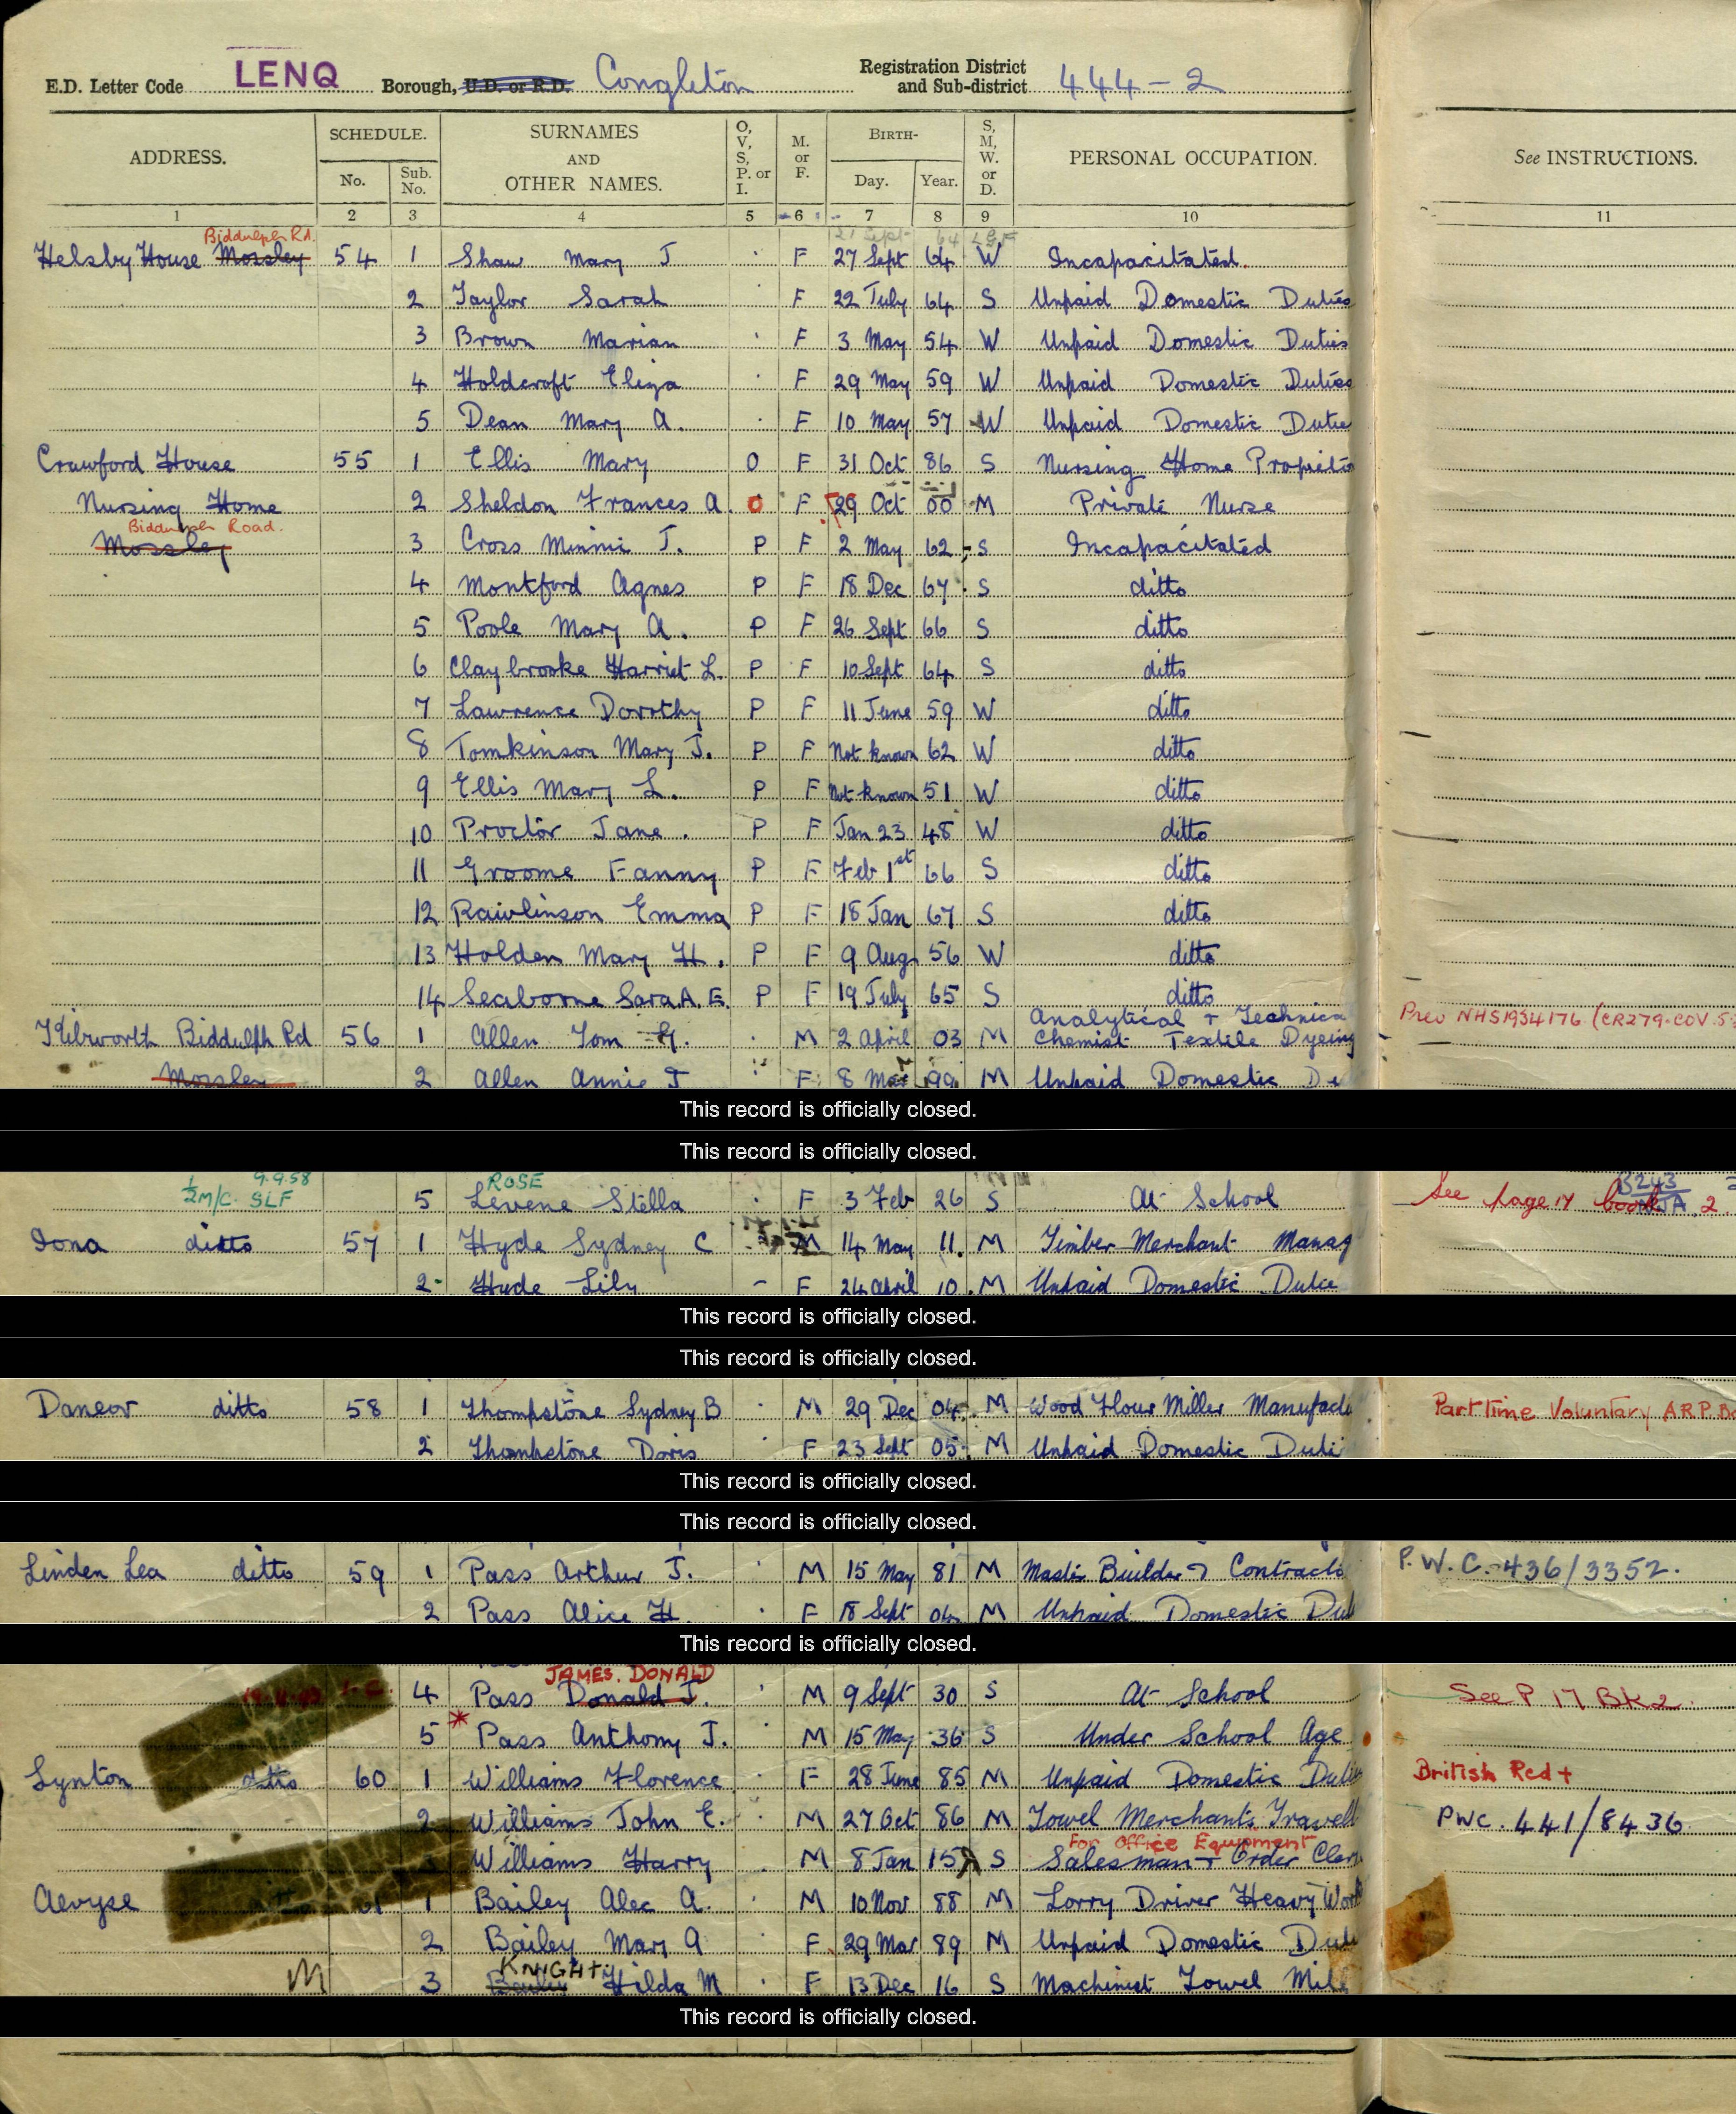 E.D. Letter Code LENQ Borough, U.D. or R.D. Congleton Registration District and Sub-district 444-2
ADDRESS. SCHEDULE. No. Sub. No. SURNAMES AND OTHER NAMES. O, V, S, P. or I. M. or F. BIRTH- Day. Year. S, M, W. or D. PERSONAL OCCUPATION. See INSTRUCTIONS.
1 2 3 4 5 6 7 8 9 10 11
Biddulph Rd.
Helsby House Mossley 54 1 Shaw Mary J F 27 Sept 64 W Incapacitated.
2 Taylor Sarah F 22 July 64 S Unpaid Domestic Duties
3 Brown Marian F 3 May 54 W Unpaid Domestic Duties
4 Holdcroft Eliza F 29 May 59 W Unpaid Domestic Duties
5 Dean Mary A. F 10 May 57 W Unpaid Domestic Dutie
Crawford House 55 1 Ellis Mary O F 31 Oct 86 S Nursing Home Proprieto
Nursing Home 2 Sheldon Frances A. O F 29 Oct 00 M Private Nurse
Biddulph Road.
Mossley 3 Cross Minnie J. P F 2 May 62 S Incapacitated
4 Montford Agnes P F 18 Dec 67 S ditto
5 Poole Mary A. P F 26 Sept 66 S ditto
6 Claybrooke Harriet L. P F 10 Sept 64 S ditto
7 Lawrence Dorothy P F 11 June 59 W ditto
8 Tomkinson Mary J. P F Not known 62 W ditto
9 Ellis Mary L. P F Not known 51 W ditto
10 Proctor Jane. P F Jan 23 48 W ditto
11 Groome Fanny P F Feb 1st 66 S ditto
12 Rawlinson Emma P F 18 Jan 67 S ditto
13 Holden Mary H. P F 9 Aug 56 W ditto
14 Seaborne Sara A. E. P F 19 July 65 S ditto
Analytical + Technica Prev NHS1934176 (CR279.COV.5
Kibworth Biddulph Rd 56 1 Allen Tom M 2 April 03 M Chemist Textile Dyeing
Mossley 2 Allen Annie J F 8 Mar 99 M Unpaid Domestic Du
This record is officially closed.
This record is officially closed.
9.9.58 ROSE
½M/C. SLF 5 Levene Stella F 3 Feb 26 S At School See page 17 book 2
Iona ditto 57 1 Hyde Sydney C M 14 May 11. M Timber Merchant Manag
2 Hyde Lily F 24 April 10. M Unpaid Domestic Dutie
This record is officially closed.
This record is officially closed.
Daneor ditto 58 1 Thompstone Sydney B M 29 Dec 04 M Wood Flour Miller Manufact Part Time Voluntary A.R.P.
2 Thompstone Doris F 23 Sept 05 M Unpaid Domestic Duti
This record is officially closed.
This record is officially closed.
Linden Lea ditto 59 1 Pass Arthur J. M 15 May 81 M Master Builder & Contracto P.W.C. 436/3352.
2 Pass Alice H. F 18 Sept 04 M Unpaid Domestic Dut
This record is officially closed.
JAMES. DONALD
4 Pass Donald J. M 9 Sept 30 S At School See P 17 BK2
5 Pass Anthony J. M 15 May 36 S Under School Age
Lynton ditto 60 1 Williams Florence F 28 June 85 M Unpaid Domestic Duties British Red +
2 Williams John E. M 27 Oct 86 M Towel Merchants Travell PWC. 441/8436
For Office Equipment
Williams Harry M 8 Jan 15 S Salesman + Order Cler
Aevyse 61 1 Bailey Alec A. M 10 Nov 88 M Lorry Driver Heavy Work
2 Bailey Mary A F 29 Mar 89 M Unpaid Domestic Duti
KNIGHT
M 3 Bailey Hilda M F 13 Dec 16 S Machinist Towel Mill
This record is officially closed.